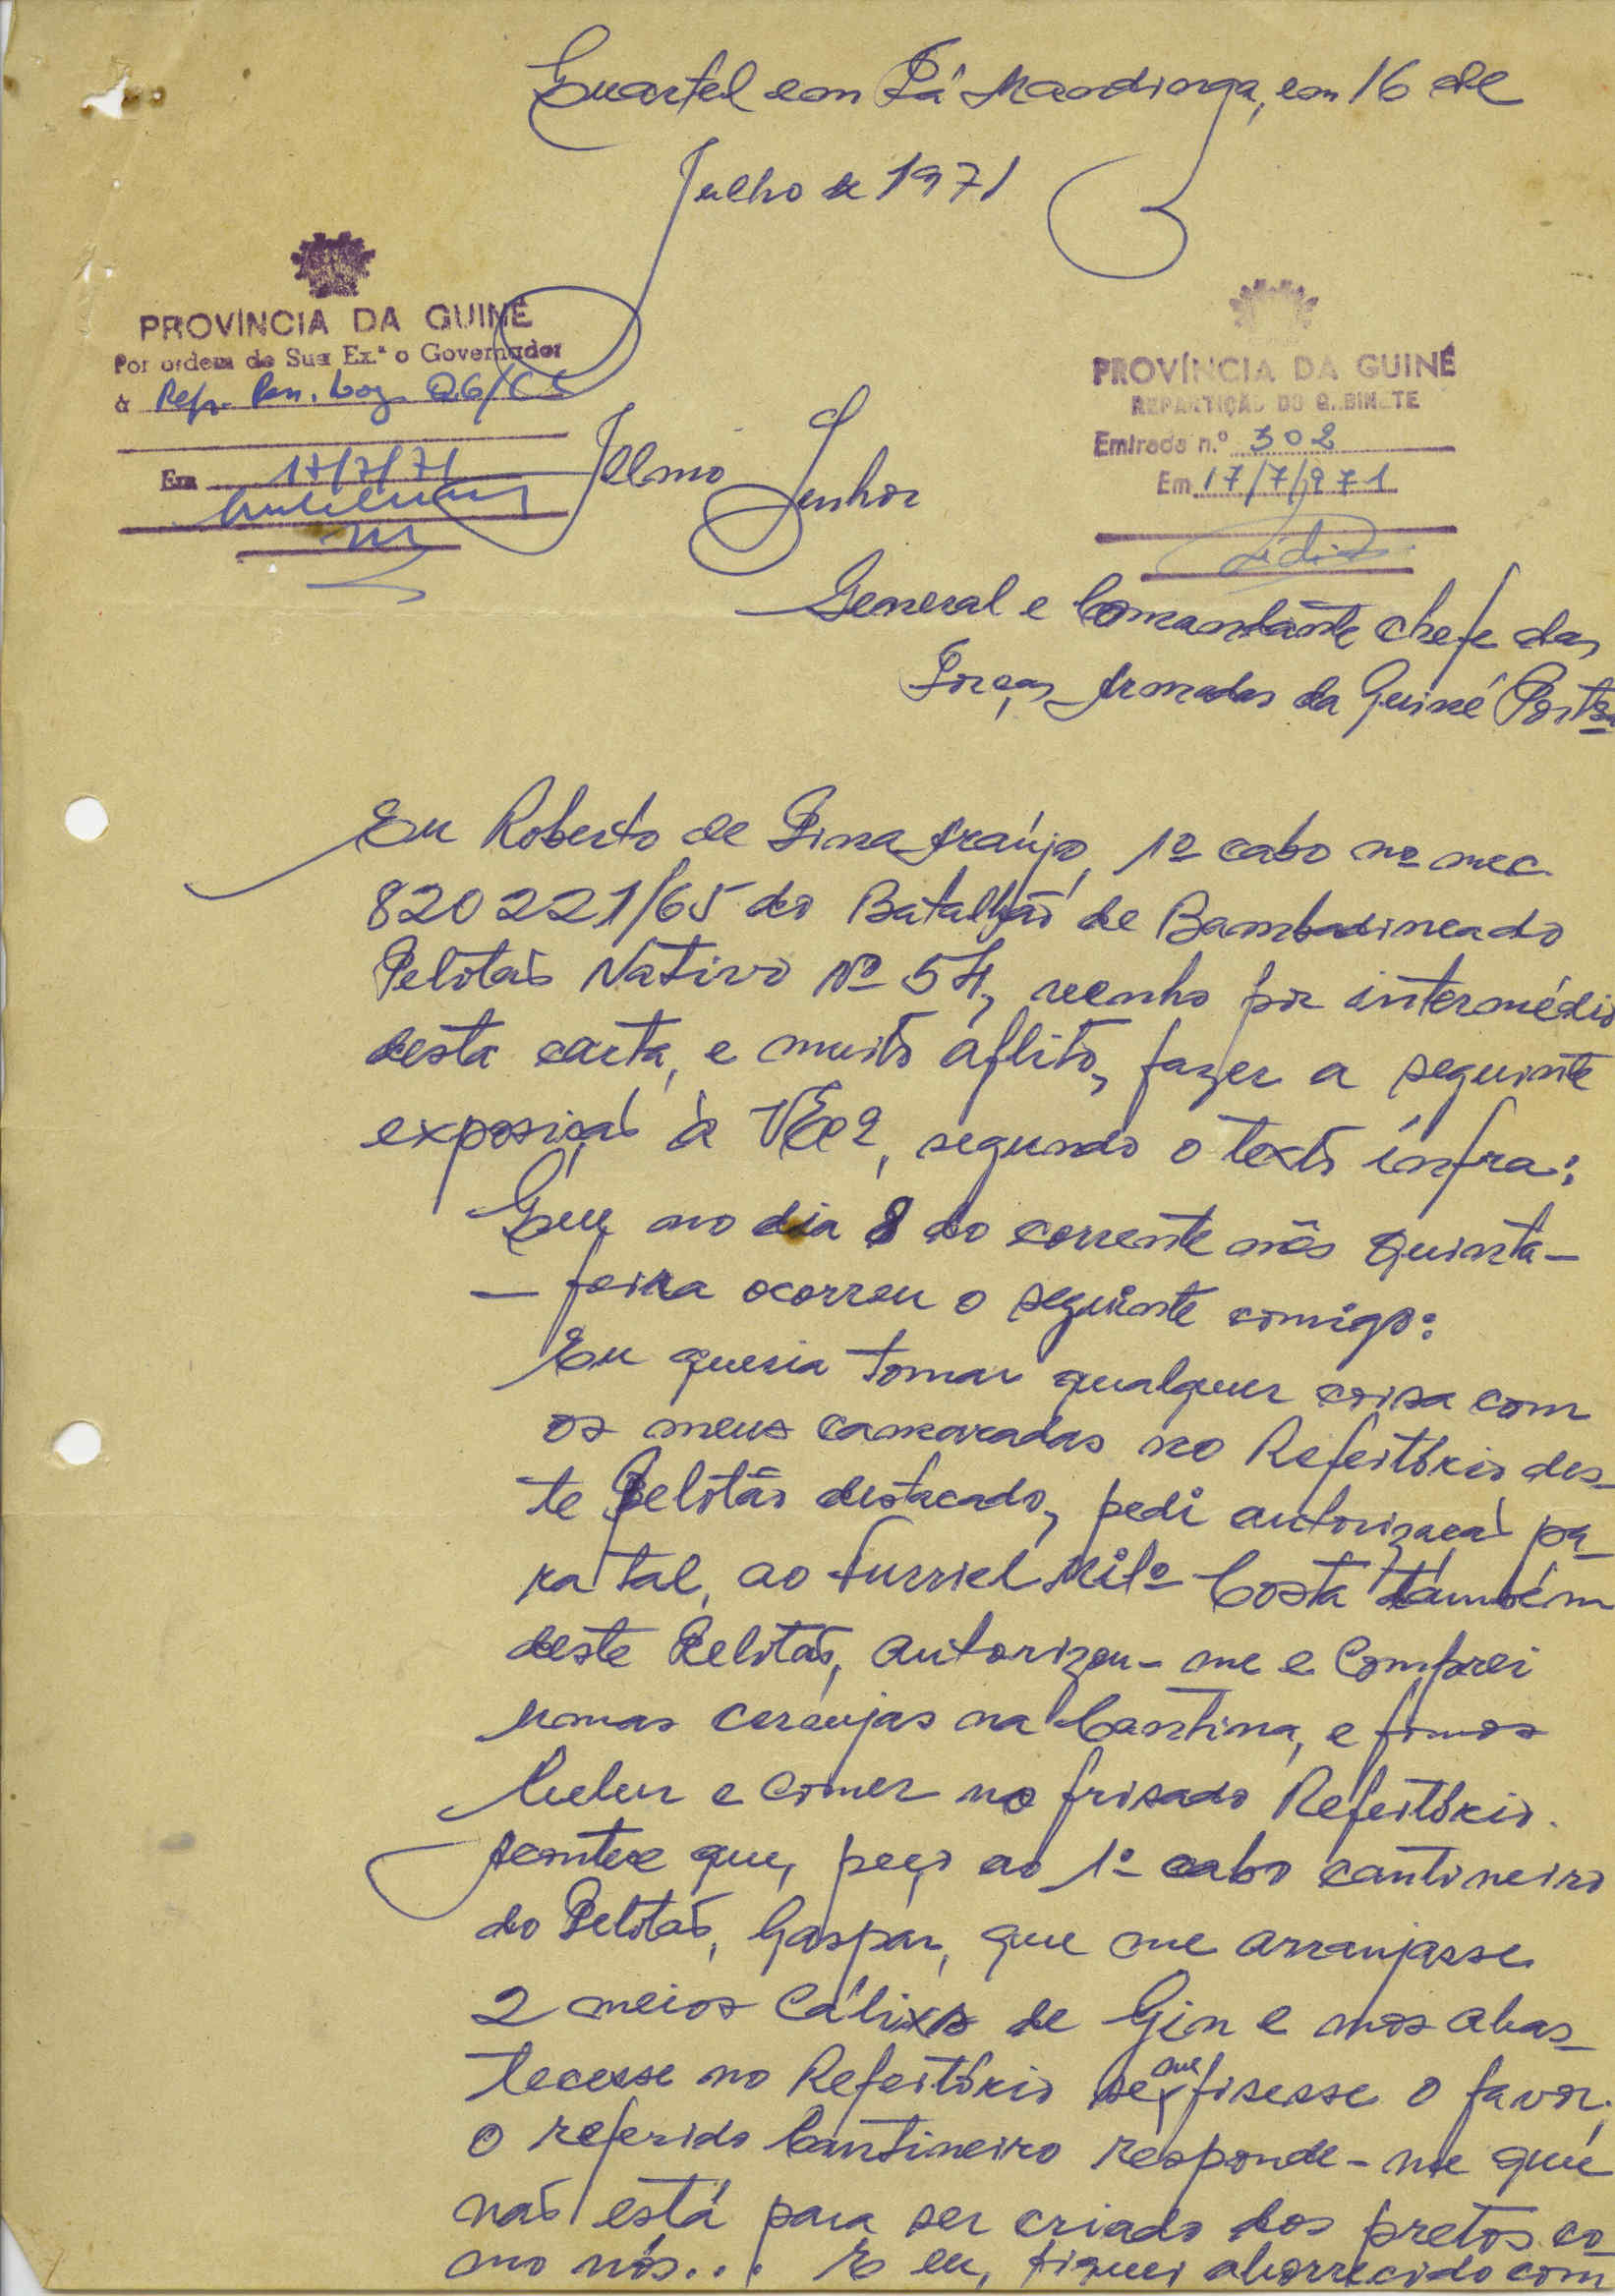 Quartel em Fá Mandinga, em 16 de
Julho de 1971
PROVÍNCIA DA GUINÉ
Por ordem de Sua Ex.ª o Governador
à Rep.
Em 17/7/71
PROVÍNCIA DA GUINÉ
REPARTIÇÃO DO GABINETE
Entrada n.º 302
Em 17/7/1971
Illmo Senhor
General e Comandante Chefe das
Forças Armadas da Guiné
Eu Roberto de Pina Araújo, 1º cabo nº mec.
820221/65 do Batalhão de Bambadinca do
Pelotão Nativo Nº 54, venho por intermédio
desta carta, e muito aflito, fazer a seguinte
exposição à VExª, segundo o texto infra:
Que no dia 8 do corrente mês quinta-
-feira ocorreu o seguinte comigo:
Eu queria tomar qualquer coisa com
os meus camaradas no Refeitório des-
te Pelotão destacado, pedi autorização pa-
ra tal, ao Furriel Milº Costa também
deste Pelotão, autorizou-me e comprei
umas cervejas na Cantina, e fomos
beber e comer no frisado Refeitório.
Acontece que, peço ao 1º cabo cantineiro
do Pelotão, Gaspar, que me arranjasse
2 meios Cálixs de Gin e nos abas-
tecesse no Refeitório se me fisesse o favor.
O referido Cantineiro responde-me que
não está para ser criado dos pretos co-
mo nós... E eu, fiquei aborrecido com